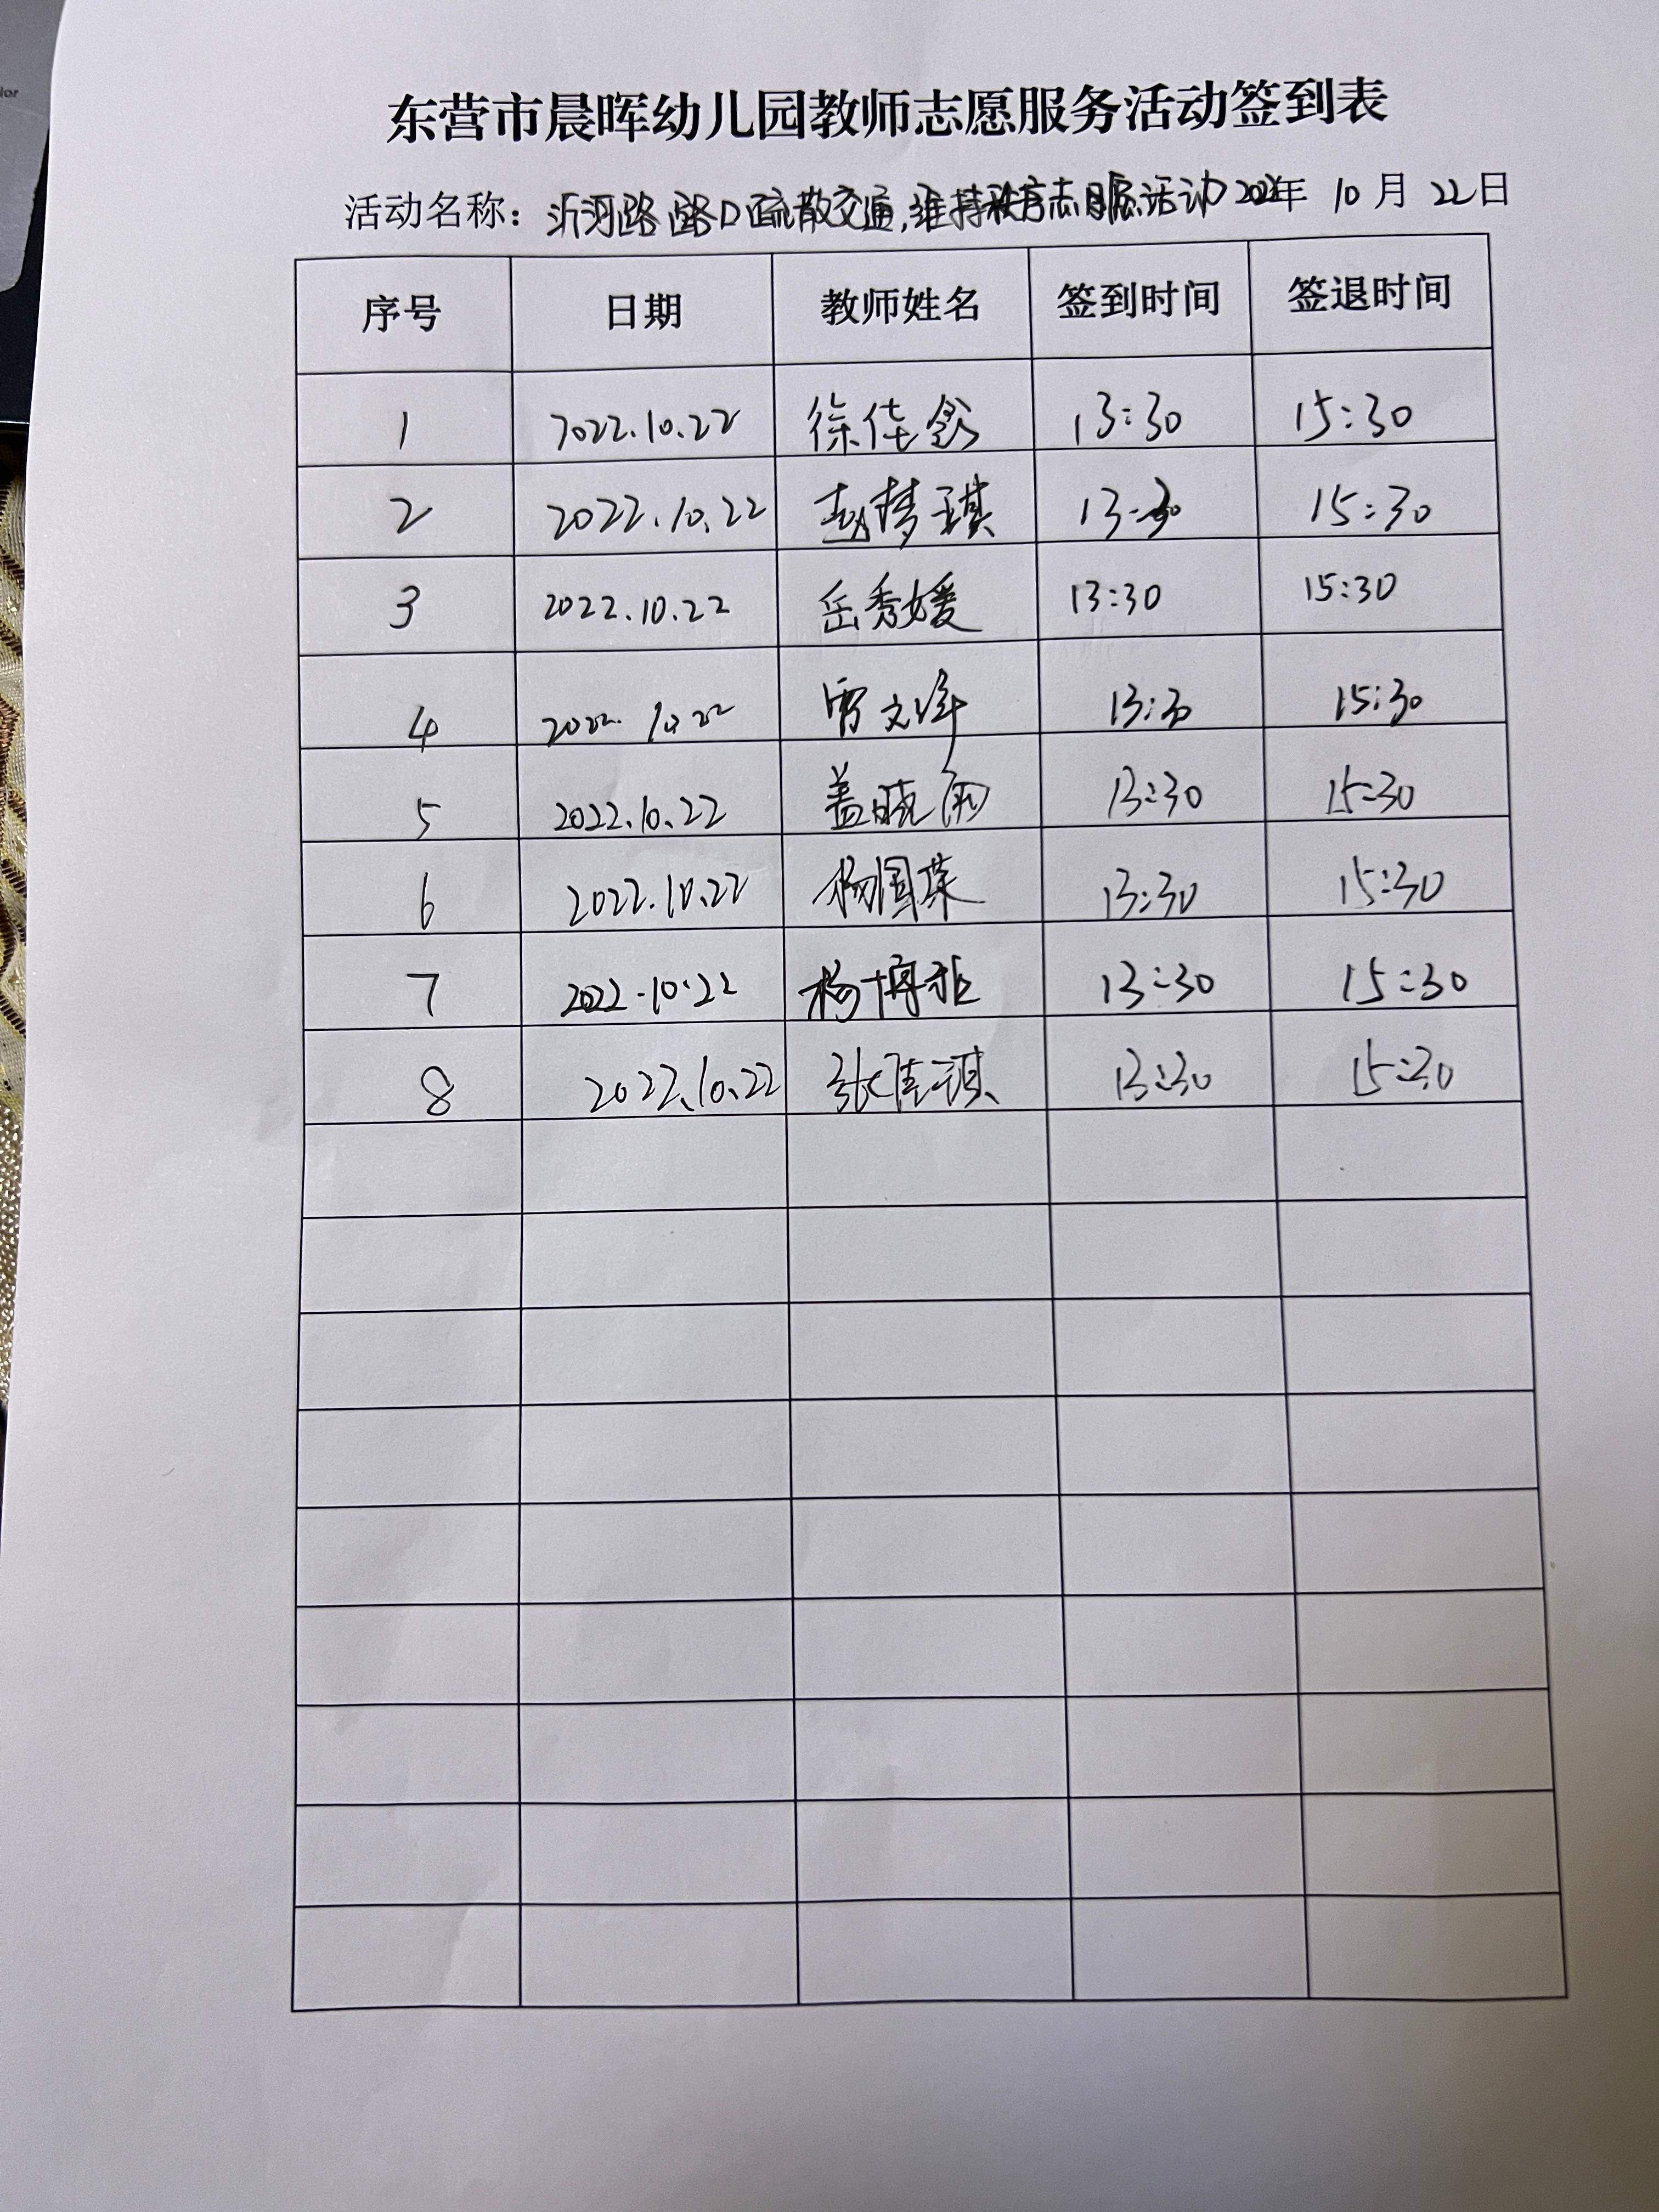 东营市晨晖幼儿园教师志愿服务活动签到表
活动名称：沂河路路口疏散交通,维持秩序志愿活动2022年 10 月 22日
序号 日期 教师姓名 签到时间 签退时间
1 2022.10.22 徐佳 13:30 15:30
2 2022.10.22 赵梦琪 13:30 15:30
3 2022.10.22 岳秀媛 13:30 15:30
4 2022.10.22 贾文峰 13:30 15:30
5 2022.10.22 盖晓雨 13:30 15:30
6 2022.10.22 杨国荣 13:30 15:30
7 2022.10.22 杨博雅 13:30 15:30
8 2022.10.22 张佳琪 13:30 15:30